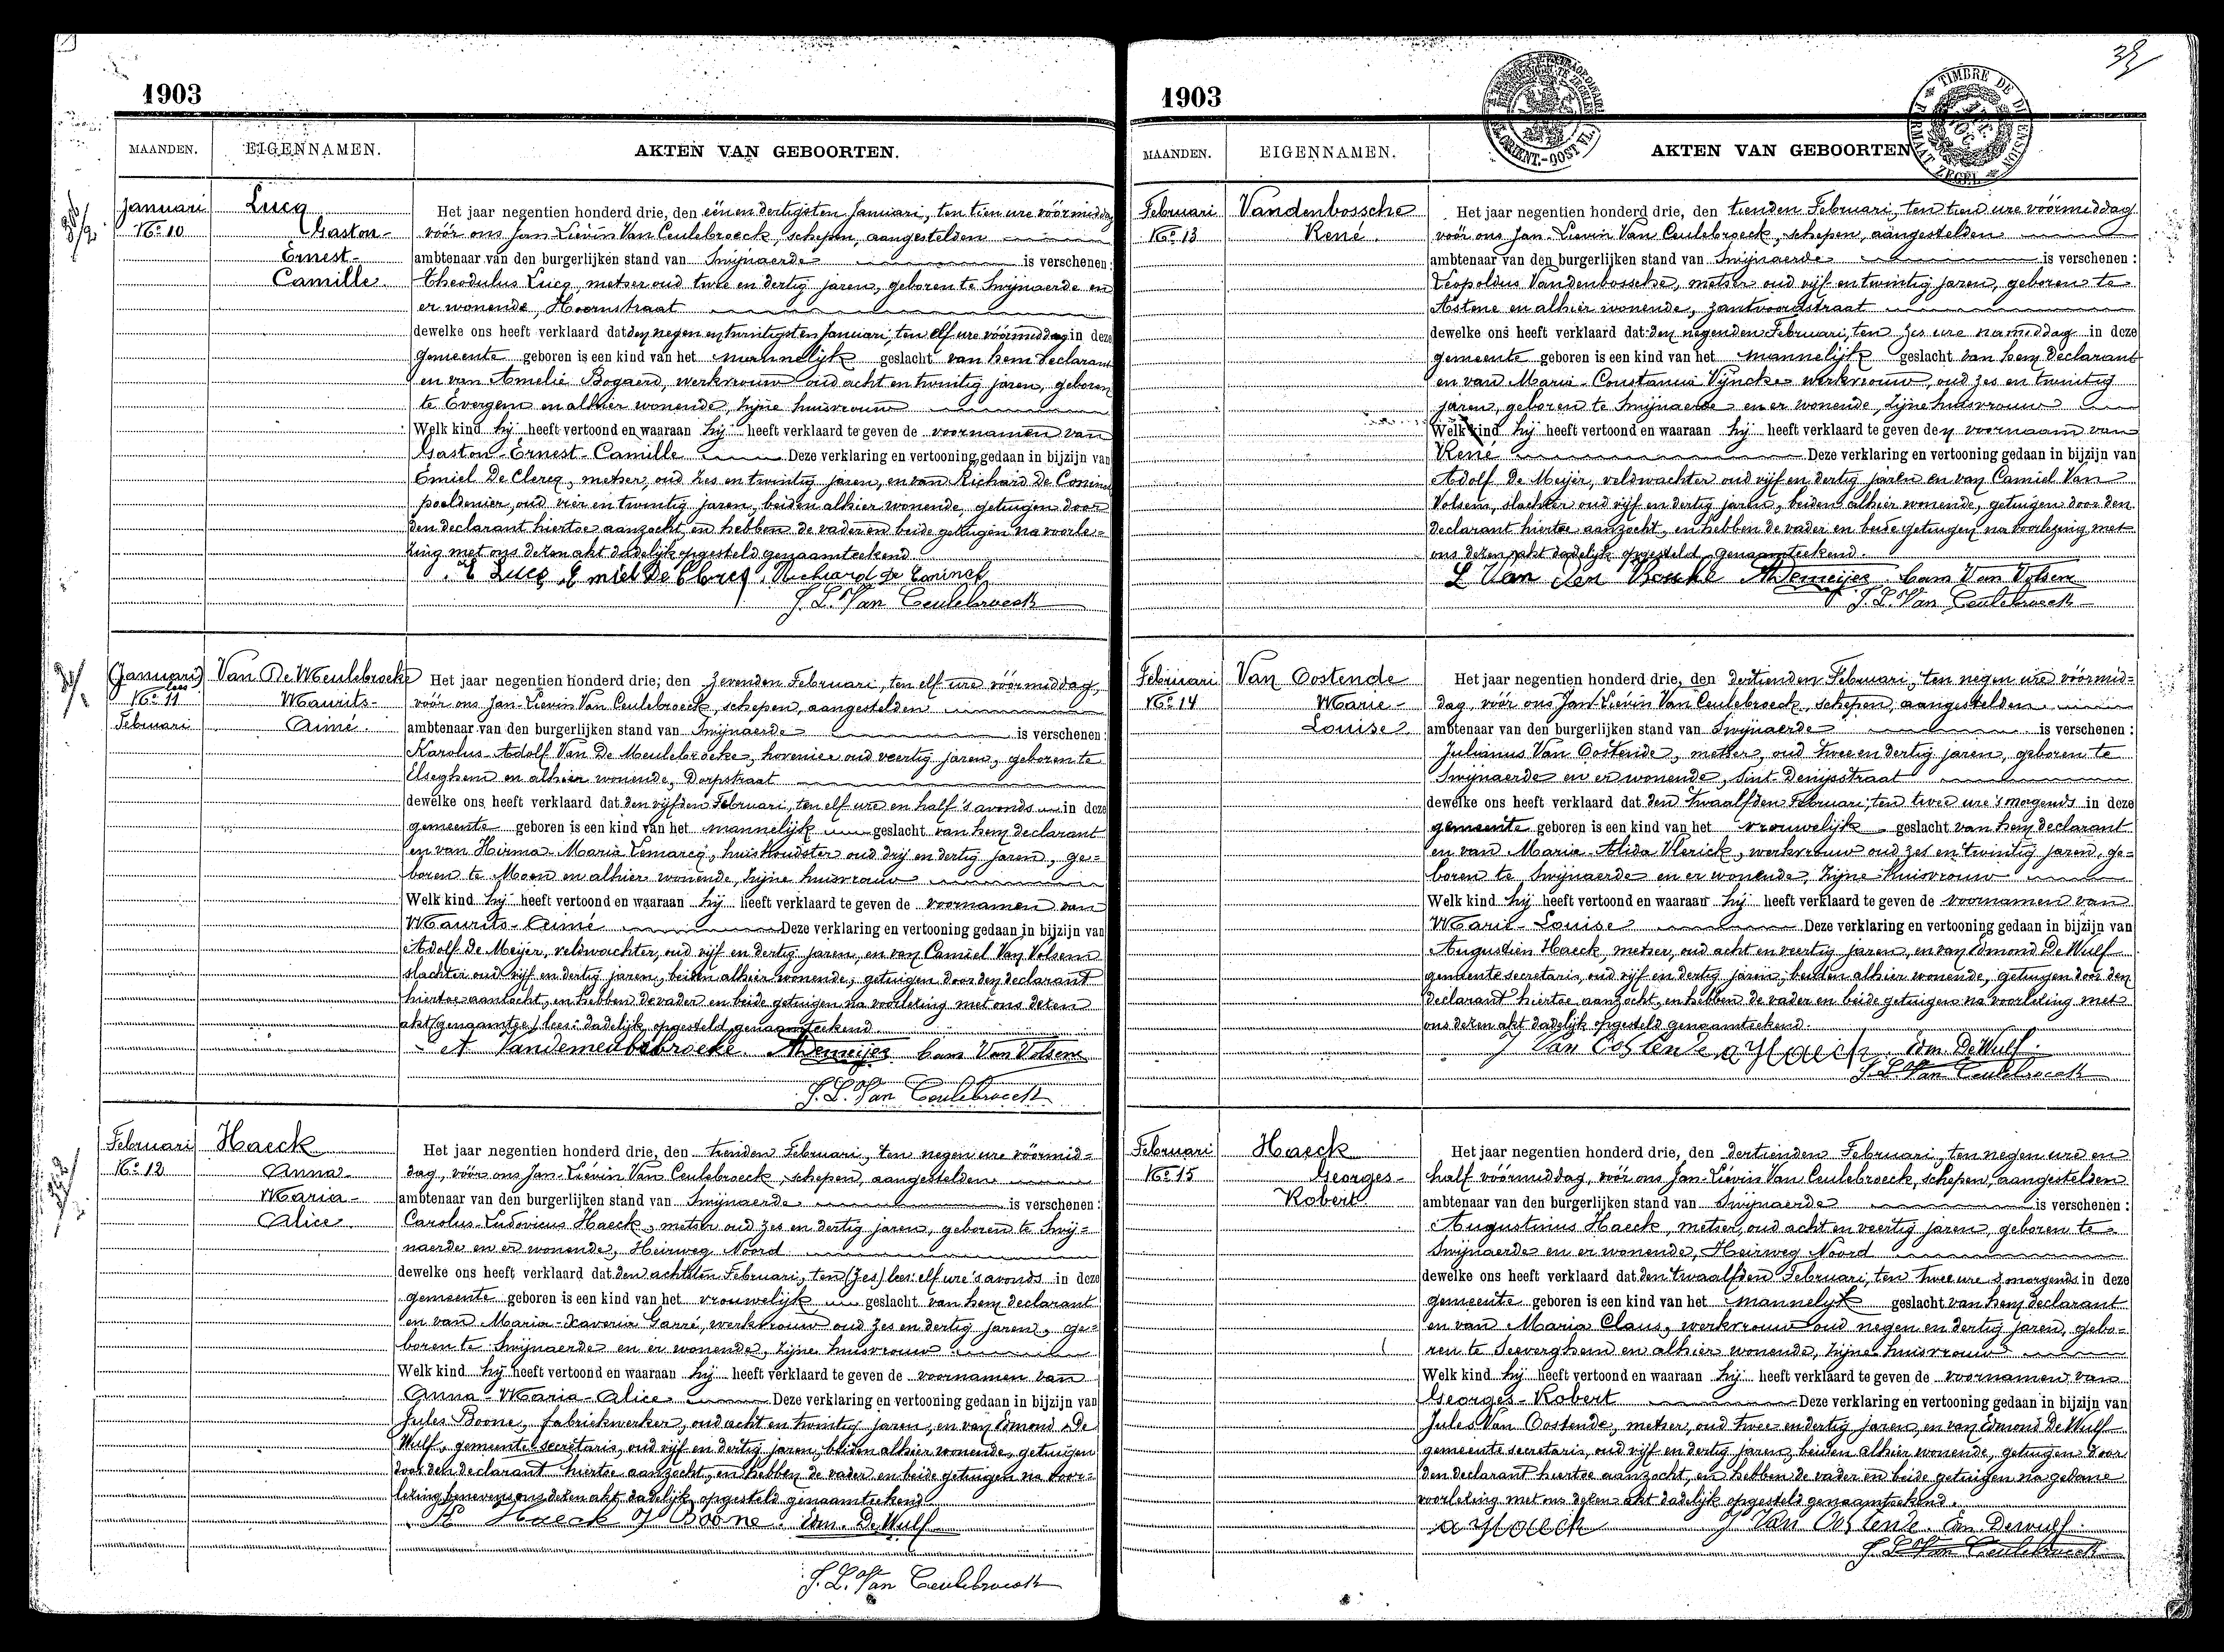 1903
MAANDEN. EIGENNAMEN. AKTEN VAN GEBOORTEN.
Januari Lucq
No 10 Gaston-
Ernest-
Camille.
Het jaar negentien honderd drie, den één en dertigsten Januari, ten tien ure vóórmiddag
vóór ons Jan-Liévin Van Ceulebroeck, schepen, aangestelden
ambtenaar van den burgerlijken stand van Swijnaerde is verschenen:
Theodulus Lucq, metser oud twee en dertig jaren, geboren te Swijnaerde en
er wonende, Hoornstraat
dewelke ons heeft verklaard dat den negen en twintigsten Januari, ten elf ure vóórmiddag in deze
gemeente geboren is een kind van het mannelijk geslacht van hem declarant
en van Amelie Bogaerd, werkvrouw oud acht en twintig jaren, geboren
te Evergem en alhier wonende, zijne huisvrouw
Welk kind hij heeft vertoond en waaraan hij heeft verklaard te geven de voornamen van
Gaston-Ernest-Camille Deze verklaring en vertooning gedaan in bijzijn van
Emiel De Clercq, metser, oud zes en twintig jaren, en van Richard De Coninck
poeldenier, oud vier en twintig jaren, beiden alhier wonende, getuigen door
den declarant hiertoe aanzocht, en hebben de vader en beide getuigen na voorle=
zing met ons dezen akt dadelijk opgesteld genaamteekend.
T Lucq Emiel De Clercq Richard De Coninck
J. L. Van Ceulebroeck
(Januari) Van De Meulebroeke
lees
No 11 Maurits-
Februari Aimé.
Het jaar negentien honderd drie, den zevenden Februari, ten elf ure vóórmiddag,
vóór ons Jan-Lievin Van Ceulebroeck, schepen, aangestelden
ambtenaar van den burgerlijken stand van Swijnaerde is verschenen:
Karolus-Adolf Van De Meulebroeke, hovenier oud veertig jaren, geboren te
Elseghem en alhier wonende, Dorpstraat
dewelke ons heeft verklaard dat den vijfden Februari, ten elf ure en half 's avonds in deze
gemeente geboren is een kind van het mannelijk geslacht van hem declarant
en van Hirma-Maria Lemarcq, huishoudster oud drij en dertig jaren, ge=
boren te Moen en alhier wonende, zijne huisvrouw
Welk kind hij heeft vertoond en waaraan hij heeft verklaard te geven de voornamen van
Maurits-Aimé Deze verklaring en vertooning gedaan in bijzijn van
Adolf De Meijer, veldwachter, oud vijf en dertig jaren, en van Camiel Van Volsem
slachter oud vijf en dertig jaren, beiden alhier wonende, getuigen door den declarant
hiertoe aanzocht, en hebben de vader en beide getuigen na voorlezing met ons dezen
akt (genaamtee) lees: dadelijk opgesteld genaamteekend
A Vandemeulebroeke. ADemeijer Cam Van Volsem
J. L. Van Ceulebroeck
Februari Haeck
No 12 Anna-
Maria-
Alice.
Het jaar negentien honderd drie, den tienden Februari, ten negen ure vóórmid=
dag, vóór ons Jan-Liévin Van Ceulebroeck, schepen, aangestelden
ambtenaar van den burgerlijken stand van Swijnaerde is verschenen:
Carolus-Ludovicus Haeck, metser oud zes en dertig jaren, geboren te Swij=
naerde en er wonende, Heirweg Noord
dewelke ons heeft verklaard dat den achtsten Februari, ten (zes) lees: elf ure 's avonds in deze
gemeente geboren is een kind van het vrouwelijk geslacht van hem declarant
en van Maria-Xaveria Garré, werkvrouw oud zes en dertig jaren, ge=
boren te Swijnaerde en er wonende, zijne huisvrouw
Welk kind hij heeft vertoond en waaraan hij heeft verklaard te geven de voornamen van
Anna-Maria-Alice Deze verklaring en vertooning gedaan in bijzijn van
Jules Boone, fabriekwerker, oud acht en twintig jaren, en van Edmond De
Wulf, gemeente secretaris, oud vijf en dertig jaren, beiden alhier wonende, getuigen
door den declarant hiertoe aanzocht, en hebben de vader en beide getuigen na voor=
lezing benevens ons dezen akt dadelijk opgesteld genaamteekend.
Haeck J Boone. Edm. De Wulf
J. L. Van Ceulebroeck
1903
TIMBRE DE DIMENSION
FORMAAT ZEGEL
MAANDEN. EIGENNAMEN. AKTEN VAN GEBOORTEN
Februari Vandenbossche
No 13 René.
Het jaar negentien honderd drie, den tienden Februari, ten tien ure vóórmiddag
vóór ons Jan-Lievin Van Ceulebroeck, schepen, aangestelden
ambtenaar van den burgerlijken stand van Swijnaerde is verschenen:
Leopoldus Vandenbossche, metser oud vijf en twintig jaren, geboren te
Astene en alhier wonende, Zantvoordstraat
dewelke ons heeft verklaard dat den negenden Februari, ten zes ure namiddag in deze
gemeente geboren is een kind van het mannelijk geslacht van hem declarant
en van Maria-Constancia Vyncke werkvrouw, oud zes en twintig
jaren, geboren te Swijnaerde en er wonende, zijne huisvrouw
Welk kind hij heeft vertoond en waaraan hij heeft verklaard te geven den voornaam van
René Deze verklaring en vertooning gedaan in bijzijn van
Adolf De Meijer, veldwachter oud vijf en dertig jaren en van Camiel Van
Volsem, slachter oud vijf en dertig jaren, beiden alhier wonende, getuigen door den
declarant hiertoe aanzocht, en hebben de vader en beide getuigen na voorlezing met
ons dezen akt dadelijk opgesteld genaamteekend.
L Van den Bossche ADemeijer Cam Van Volsem
J. L. Van Ceulebroeck
Februari Van Oostende
No 14 Marie-
Louise
Het jaar negentien honderd drie, den dertienden Februari, ten negen ure vóórmid=
dag, vóór ons Jan-Liévin Van Ceulebroeck, schepen, aangestelden
ambtenaar van den burgerlijken stand van Swijnaerde is verschenen:
Julianus Van Oostende, metser, oud twee en dertig jaren, geboren te
Swijnaerde en er wonende, Sint Denijsstraat
dewelke ons heeft verklaard dat den twaalfden Februari, ten twee ure 's morgends in deze
gemeente geboren is een kind van het vrouwelijk geslacht van hem declarant
en van Maria-Alida Vlerick, werkvrouw oud zes en twintig jaren, ge=
boren te Swijnaerde en er wonende, zijne huisvrouw
Welk kind hij heeft vertoond en waaraan hij heeft verklaard te geven de voornamen van
Marie-Louise Deze verklaring en vertooning gedaan in bijzijn van
Augustien Haeck, metser, oud acht en veertig jaren, en van Edmond De Wulf
gemeente secretaris, oud vijf en dertig jaren, beiden alhier wonende, getuigen door den
declarant hiertoe aanzocht, en hebben de vader en beide getuigen na voorlezing met
ons dezen akt dadelijk opgesteld genaamteekend.
J Van Oostende a Haeck Edm. De Wulf.
J. L. Van Ceulebroeck
Februari Haeck
No 15 Georges-
Robert
Het jaar negentien honderd drie, den dertienden Februari, ten negen ure en
half vóórmiddag, vóór ons Jan-Liévin Van Ceulebroeck, schepen, aangestelden
ambtenaar van den burgerlijken stand van Swijnaerde is verschenen:
Augustinus Haeck, metser, oud acht en veertig jaren, geboren te
Swijnaerde en er wonende, Heirweg Noord
dewelke ons heeft verklaard dat den twaalfden Februari, ten twee ure 's morgends in deze
gemeente geboren is een kind van het mannelijk geslacht van hem declarant
en van Maria Claus, werkvrouw oud negen en dertig jaren, gebo=
ren te Seeverghem en alhier wonende, zijne huisvrouw
Welk kind hij heeft vertoond en waaraan hij heeft verklaard te geven de voornamen van
Georges-Robert Deze verklaring en vertooning gedaan in bijzijn van
Jules Van Oostende, metser, oud twee en dertig jaren, en van Edmond De Wulf
gemeente secretaris, oud vijf en dertig jaren, beiden alhier wonende, getuigen door
den declarant hiertoe aanzocht, en hebben de vader en beide getuigen na gedane
voorlezing met ons dezen akt dadelijk opgesteld genaamteekend.
a Haeck J Van Oostende. Edm. Dewulf.
J. L. Van Ceulebroeck